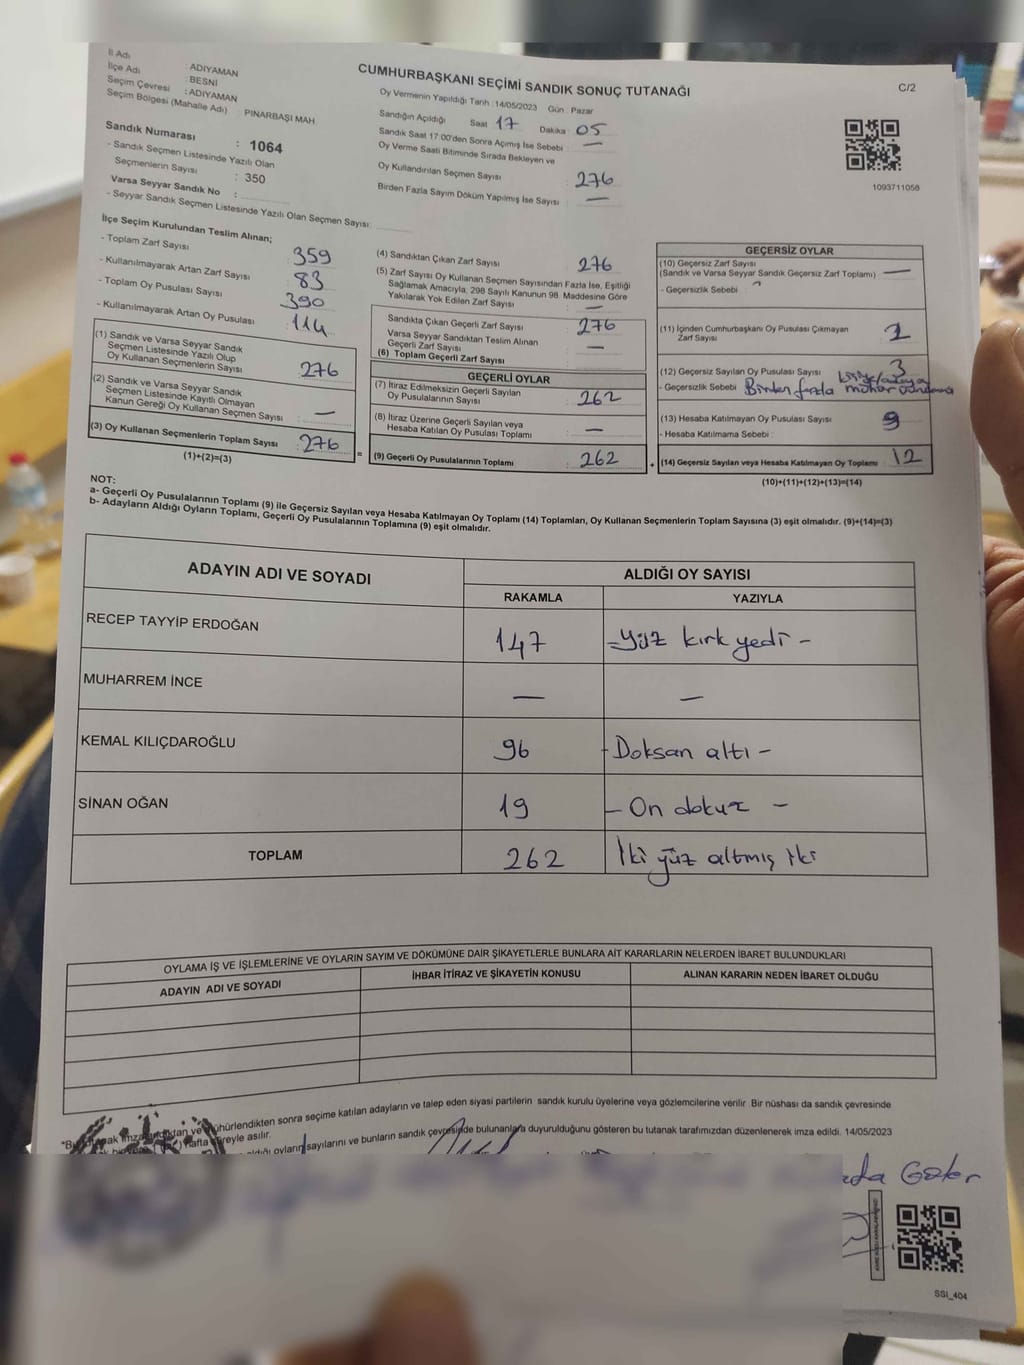 İl Adı : ADIYAMAN
İlçe Adı : BESNİ
Seçim Çevresi : ADIYAMAN
Seçim Bölgesi (Mahalle Adı) PINARBAŞI MAH.
Sandık Numarası : 1064
- Sandık Seçmen Listesinde Yazılı Olan
Seçmenlerin Sayısı : 350
Varsa Seyyar Sandık No :
- Seyyar Sandık Seçmen Listesinde Yazılı Olan Seçmen Sayısı:
CUMHURBAŞKANI SEÇİMİ SANDIK SONUÇ TUTANAĞI
C/2
Oy Vermenin Yapıldığı Tarih : 14/05/2023 Gün : Pazar
Sandığın Açıldığı Saat 17 Dakika : 05
Sandık Saat 17:00'den Sonra Açımış İse Sebebi : —
Oy Verme Saati Bitiminde Sırada Bekleyen ve
Oy Kullandırılan Seçmen Sayısı : 276
Birden Fazla Sayım Döküm Yapılmış İse Sayısı : —
1093711056
İlçe Seçim Kurulundan Teslim Alınan;
- Toplam Zarf Sayısı : 359
- Kullanılmayarak Artan Zarf Sayısı : 83
- Toplam Oy Pusulası Sayısı : 390
- Kullanılmayarak Artan Oy Pusulası : 114
(1) Sandık ve Varsa Seyyar Sandık
Seçmen Listesinde Yazılı Olup
Oy Kullanan Seçmenlerin Sayısı : 276
(2) Sandık ve Varsa Seyyar Sandık
Seçmen Listesinde Kayıtlı Olmayan
Kanun Gereği Oy Kullanan Seçmen Sayısı : —
(3) Oy Kullanan Seçmenlerin Toplam Sayısı : 276
(1)+(2)=(3)
(4) Sandıktan Çıkan Zarf Sayısı : 276
(5) Zarf Sayısı Oy Kullanan Seçmen Sayısından Fazla İse, Eşitliği
Sağlamak Amacıyla, 298 Sayılı Kanunun 98. Maddesine Göre
Yakılarak Yok Edilen Zarf Sayısı : —
Sandıkta Çıkan Geçerli Zarf Sayısı : 276
Varsa Seyyar Sandıktan Teslim Alınan
Geçerli Zarf Sayısı : —
(6) Toplam Geçerli Zarf Sayısı
GEÇERLİ OYLAR
(7) İtiraz Edilmeksizin Geçerli Sayılan
Oy Pusulalarının Sayısı : 262
(8) İtiraz Üzerine Geçerli Sayılan veya
Hesaba Katılan Oy Pusulası Toplamı : —
(9) Geçerli Oy Pusulalarının Toplamı : 262
GEÇERSİZ OYLAR
(10) Geçersiz Zarf Sayısı
(Sandık ve Varsa Seyyar Sandık Geçersiz Zarf Toplamı) —
- Geçersizlik Sebebi :
(11) İçinden Cumhurbaşkanı Oy Pusulası Çıkmayan
Zarf Sayısı
(12) Geçersiz Sayılan Oy Pusulası Sayısı : 3
- Geçersizlik Sebebi : Birden fazla
(13) Hesaba Katılmayan Oy Pusulası Sayısı : 9
- Hesaba Katılmama Sebebi :
(14) Geçersiz Sayılan veya Hesaba Katılmayan Oy Toplamı : 12
(10)+(11)+(12)+(13)=(14)
NOT:
a- Geçerli Oy Pusulalarının Toplamı (9) ile Geçersiz Sayılan veya Hesaba Katılmayan Oy Toplamı (14) Toplamları, Oy Kullanan Seçmenlerin Toplam Sayısına (3) eşit olmalıdır. (9)+(14)=(3)
b- Adayların Aldığı Oyların Toplamı, Geçerli Oy Pusulalarının Toplamına (9) eşit olmalıdır.
ADAYIN ADI VE SOYADI ALDIĞI OY SAYISI
RAKAMLA YAZIYLA
RECEP TAYYİP ERDOĞAN 147 -Yüz kırk yedi-
MUHARREM İNCE — —
KEMAL KILIÇDAROĞLU 96 -Doksan altı-
SİNAN OĞAN 19 -On dokuz -
TOPLAM 262 İki yüz altmış iki
OYLAMA İŞ VE İŞLEMLERİNE VE OYLARIN SAYIM VE DÖKÜMÜNE DAİR ŞİKAYETLERLE BUNLARA AİT KARARLARIN NELERDEN İBARET BULUNDUKLARI
ADAYIN ADI VE SOYADI İHBAR İTİRAZ VE ŞİKAYETİN KONUSU ALINAN KARARIN NEDEN İBARET OLDUĞU
ühürlendikten sonra seçime katılan adayların ve talep eden siyasi partilerin sandık kurulu üyelerine veya gözlemcilerine verilir. Bir nüshası da sandık çevresinde
hafta süreyle asılır.
oyların sayılarını ve bunların sandık çevresinde bulunanlara duyurulduğunu gösteren bu tutanak tarafımızdan düzenlenerek imza edildi. 14/05/2023
SSI_404